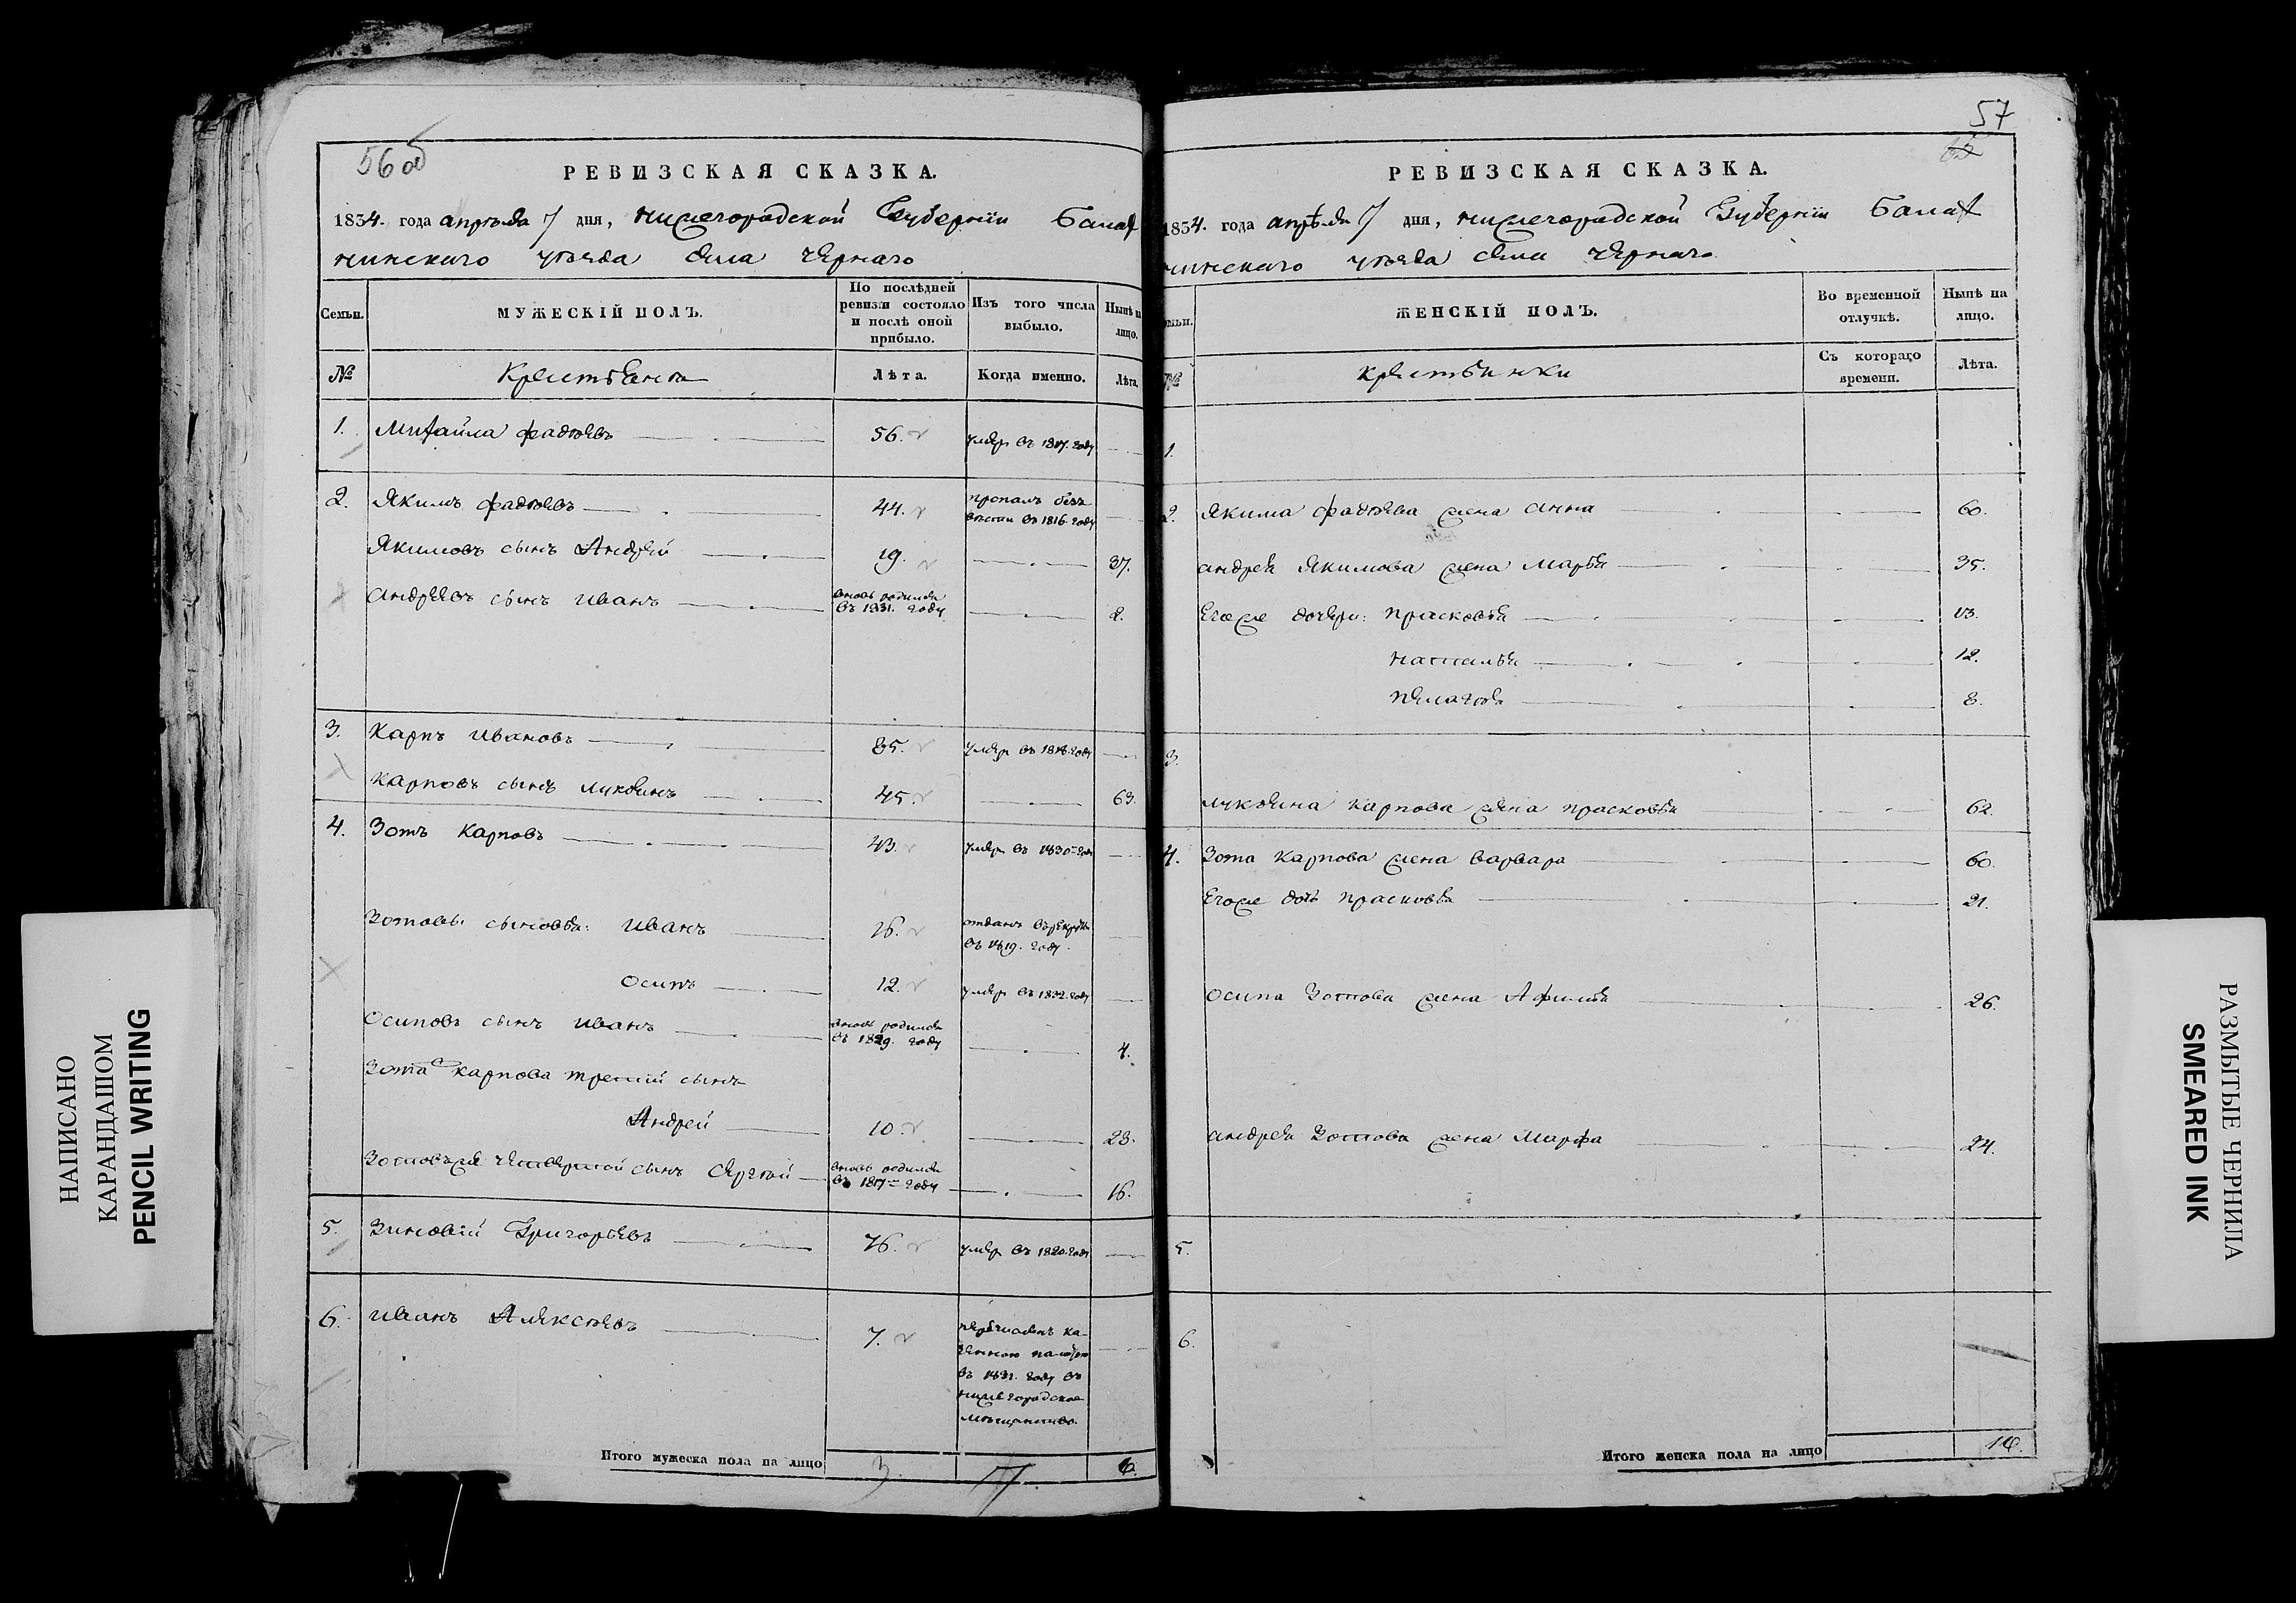 56 об
РЕВИЗСКАЯ СКАЗКА.
1834. года апрѣля 7 дня, нижегородской Губерніи Балах
нинскаго уѣзда села чернаго
Семьи.
МУЖЕСКІЙ ПОЛЪ.
По послѣдней ревизіи состояло и послѣ оной прибыло.
Изъ того числа выбыло.
Нынѣ на лицо.
№
Крестьяня
Лѣта.
Когда именно.
Лѣта.
1. Михайла фадѣевъ 56. умеръ въ 1817. году
2. Якимъ фадѣевъ 44. пропалъ безъ
вѣсти въ 1816. году
Якимовъ сынъ Андрей 19. 37.
андреевъ сынъ иванъ вновь родился
въ 1831. году 2.
3. Карпъ ивановъ 85. умеръ въ 1818. году
карповъ сынъ лукьянъ 45. 63.
4. Зотъ карповъ 43. умеръ въ 1830 году
Зотовы сыновья: иванъ 16. отданъ въ рекруты
въ 1819. году.
осипъ 12. умеръ въ 1832. году
осиповъ сынъ иванъ вновь родился
въ 1829. году 4.
Зота карпова третій сынъ
Андрей 10. 28.
Зотовъ же четвертой сынъ сергѣй вновь родился
въ 1817 году 16.
5. Зиновій Григорьевъ 76. умеръ въ 1820. году
6. иванъ Алексѣевъ 7. перечисленъ ка-
зенною палатою
въ 1831. году въ
нижегородское
мѣщанство.
Итого мужеска пола на лицо 3. 6.
57
РЕВИЗСКАЯ СКАЗКА.
1834. года апрѣля 7 дня, нижегородской Губерніи Балах
нинскаго уѣзда села чернаго
Семьи.
ЖЕНСКІЙ ПОЛЪ.
Во временной отлучкѣ.
Нынѣ на лицо.
№
крестьянки
Съ котораго времени.
Лѣта.
1.
2. якима фадѣева жена анна 60.
андрея якимова жена марья 35.
Его же дочери: прасковья 13.
наталья 12.
пелагѣя 8.
3.
лукьяна карпова жена прасковья 62.
4. Зота карпова жена варвара 60.
Его же дочь прасковья 21.
осипа Зотова жена Афимья 26.
андрея Зотова жена марфа 24.
5.
6.
Итого женска пола на лицо 10.
НАПИСАНО
КАРАНДАШОМ
PENCIL WRITING
РАЗМЫТЫЕ ЧЕРНИЛА
SMEARED INK